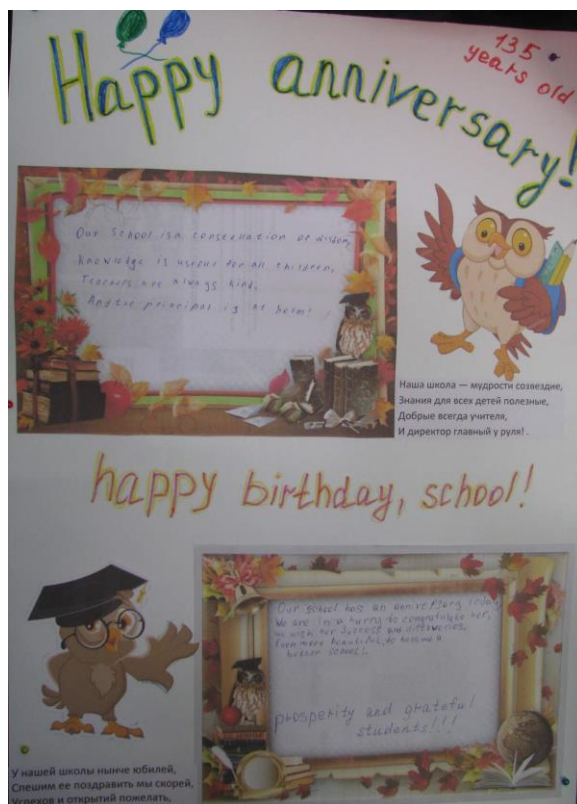 135
years old
Happy anniversary!
Our School is a constellation of wisdom,
Knowledge is useful for all children,
Teachers are always kind,
And the principal is at helm!
Наша школа — мудрости созвездие,
Знания для всех детей полезные,
Добрые всегда учителя,
И директор главный у руля! .
happy birthday, school!
Our school has an anniversary today
We are in a hurry to congratulate her,
to wish her success and discoveries,
Even more beautiful, to become a
better school!
prosperity and grateful
students!!!
У нашей школы нынче юбилей,
Спешим ее поздравить мы скорей,
Успехов и открытий пожелать,